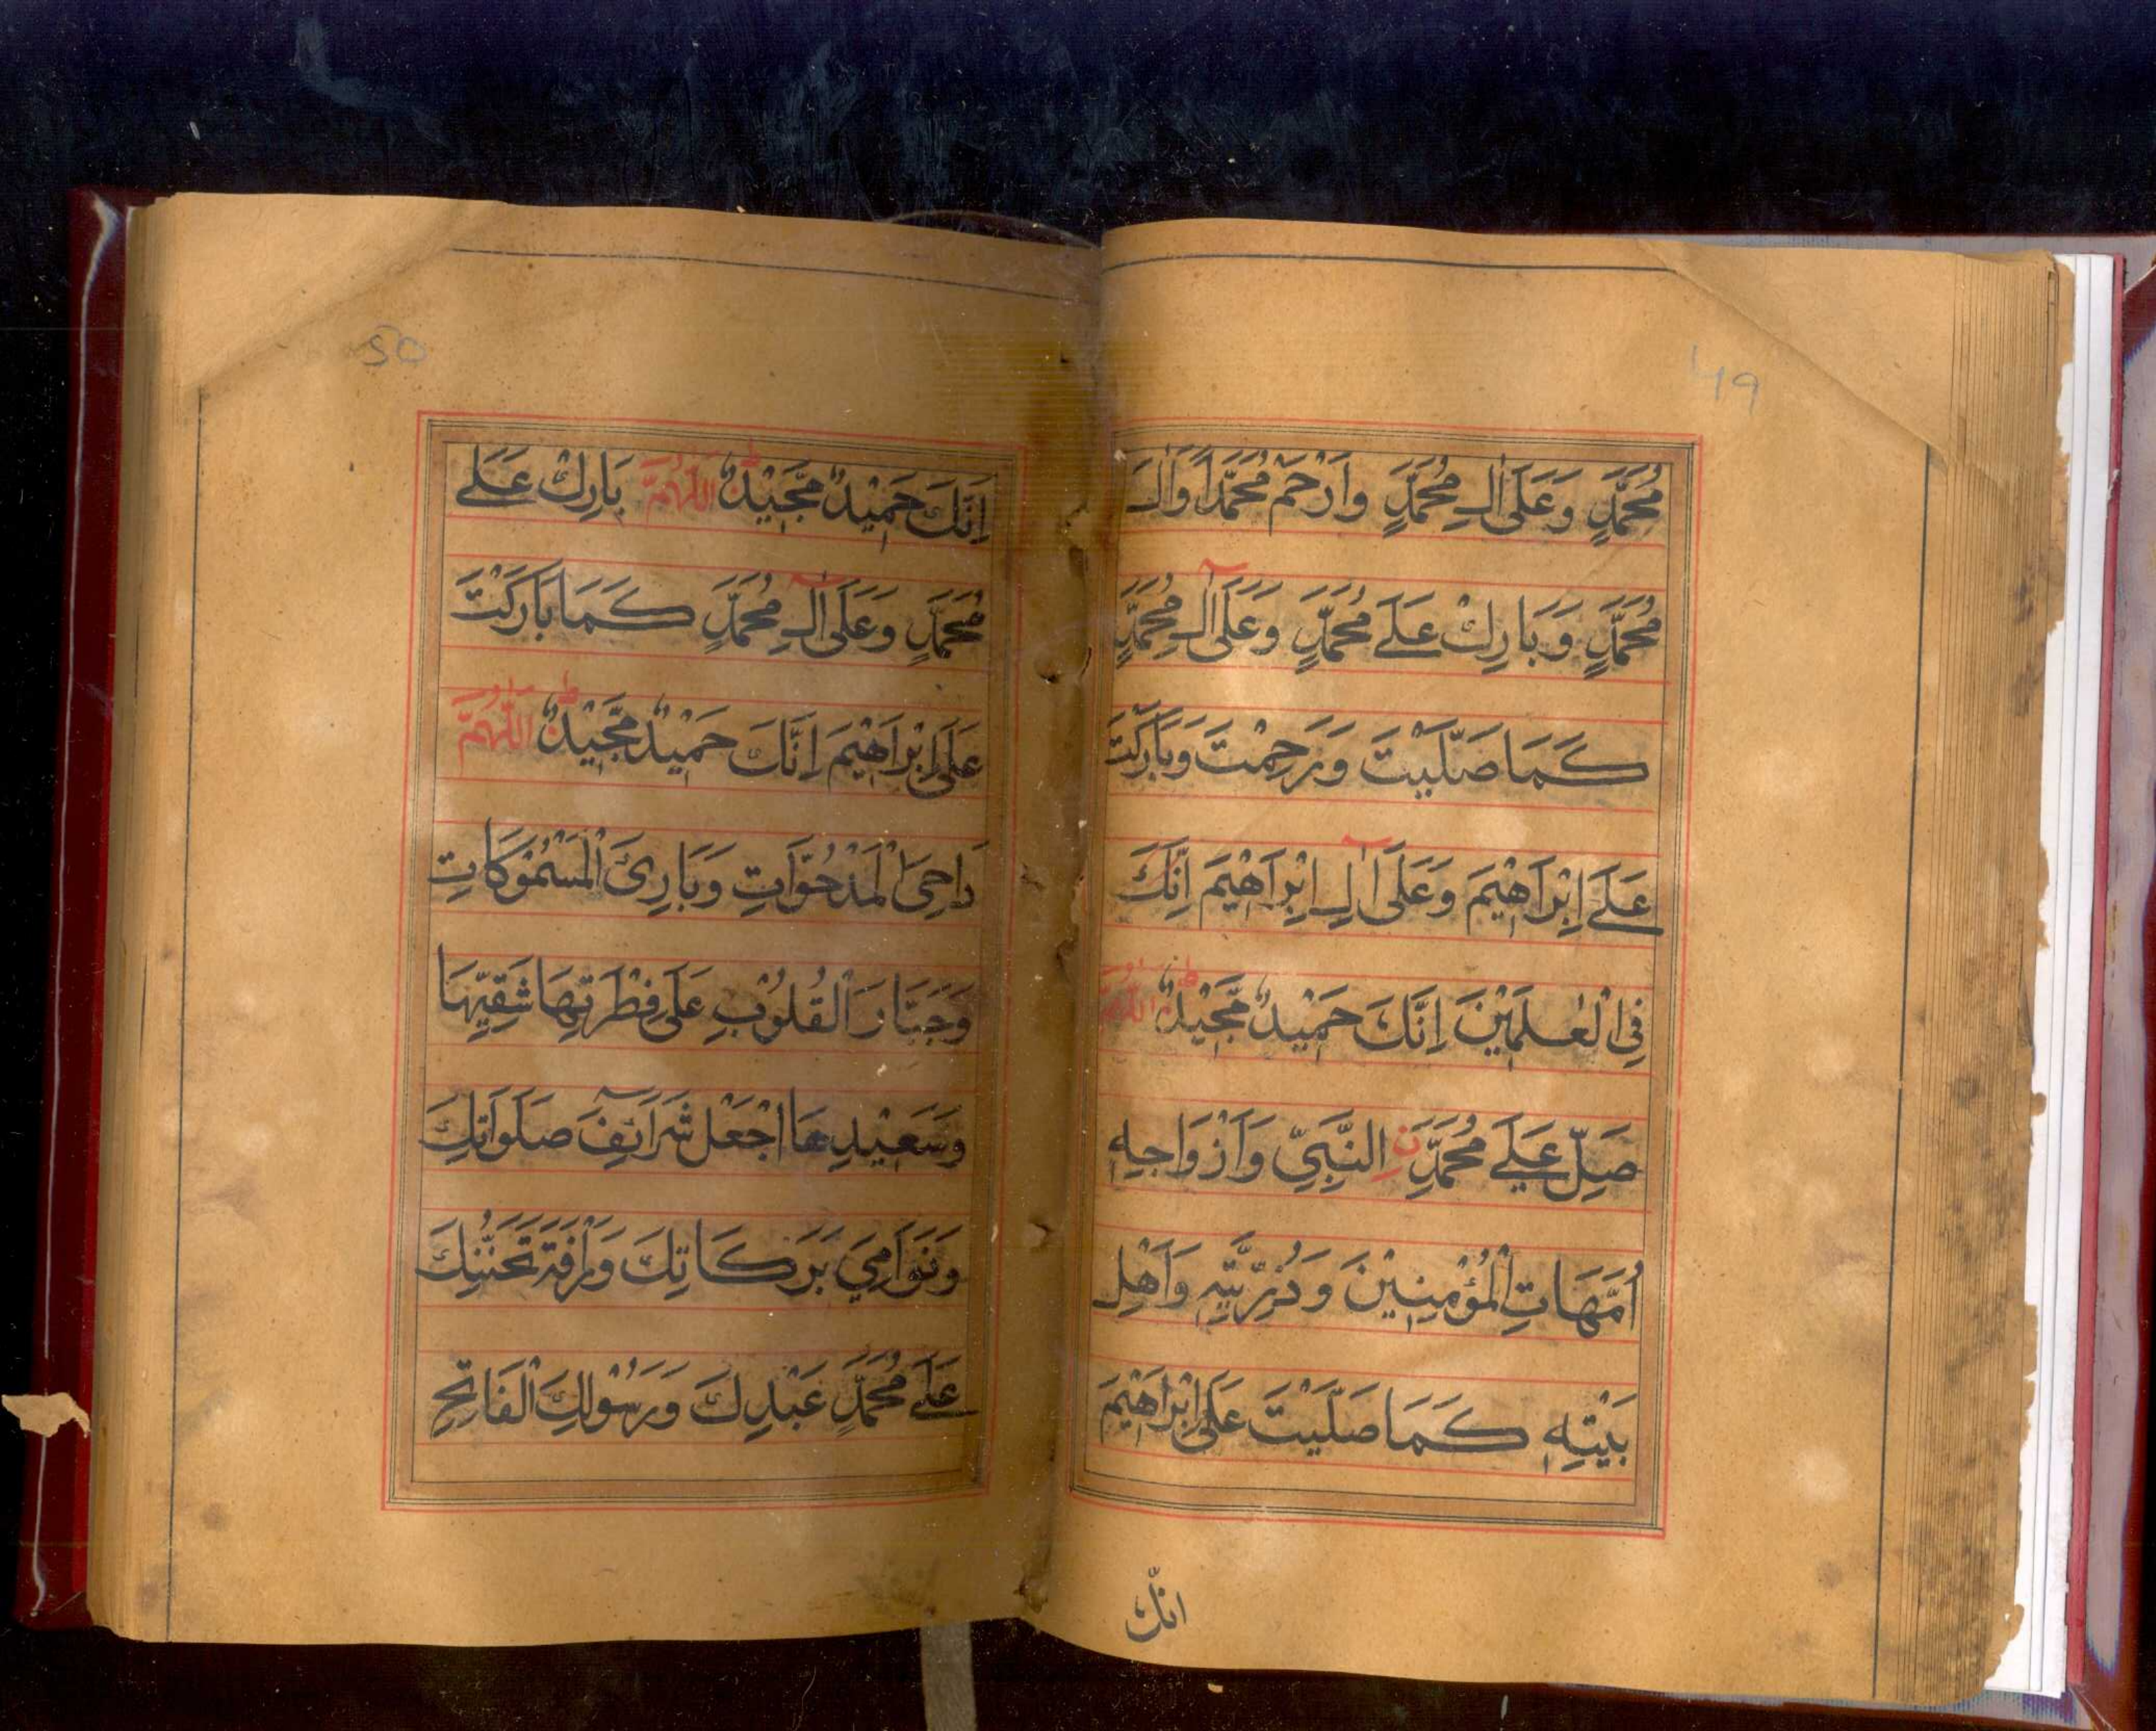 49
مُحَمَّدٍ وَعَلَىٰ اٰلِ مُحَمَّدٍ وَارْحَمْ مُحَمَّدًا وَاٰلَ
مُحَمَّدٍ وَبَارِكْ عَلٰے مُحَمَّدٍ وَعَلَىٰ اٰلِ مُحَمَّدٍ
كَمَا صَلَّيْتَ وَرَحِمْتَ وَبَارَكْتَ
عَلٰے اِبْرَاهِيْمَ وَعَلَىٰ اٰلِ اِبْرَاهِيْمَ اِنَّكَ
فِي الْعٰلَمِيْنَ اِنَّكَ حَمِيْدٌ مَّجِيْدٌ ط اَللّٰهُمَّ
صَلِّ عَلٰے مُحَمَّدِ نِ النَّبِيِّ وَاَزْوَاجِهٖ
اُمَّهَاتِ الْمُؤْمِنِيْنَ وَذُرِّيَّتِهٖ وَاَهْلِ
بَيْتِهٖ كَمَا صَلَّيْتَ عَلَىٰ اِبْرَاهِيْمَ
انّك
50
اِنَّكَ حَمِيْدٌ مَّجِيْدٌ ط اَللّٰهُمَّ بَارِكْ عَلٰے
مُحَمَّدٍ وَعَلَىٰ اٰلِ مُحَمَّدٍ كَمَا بَارَكْتَ
عَلَىٰ اِبْرَاهِيْمَ اِنَّكَ حَمِيْدٌ مَّجِيْدٌ ط اَللّٰهُمَّ
دَاحِيَ الْمَدْحُوَّاتِ وَبَارِئَ الْمَسْمُوْكَاتِ
وَجَبَّارَ الْقُلُوْبِ عَلَىٰ فِطْرَتِهَا شَقِيِّهَا
وَسَعِيْدِهَا اجْعَلْ شَرَآئِفَ صَلَوَاتِكَ
وَنَوَامِيَ بَرَكَاتِكَ وَرَأْفَةَ تَحَنُّنِكَ
عَلٰے مُحَمَّدٍ عَبْدِكَ وَرَسُوْلِكَ الْفَاتِحِ